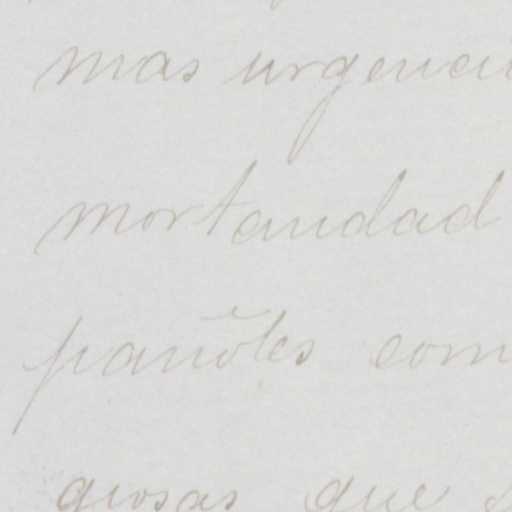 mas urgenci
mortandad
pañoles com
giosas que